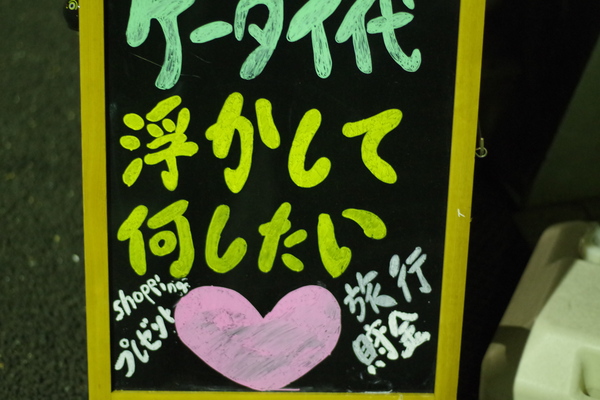 ケータイ代
浮かして
何したい
shopping
プレゼント
旅行
貯金